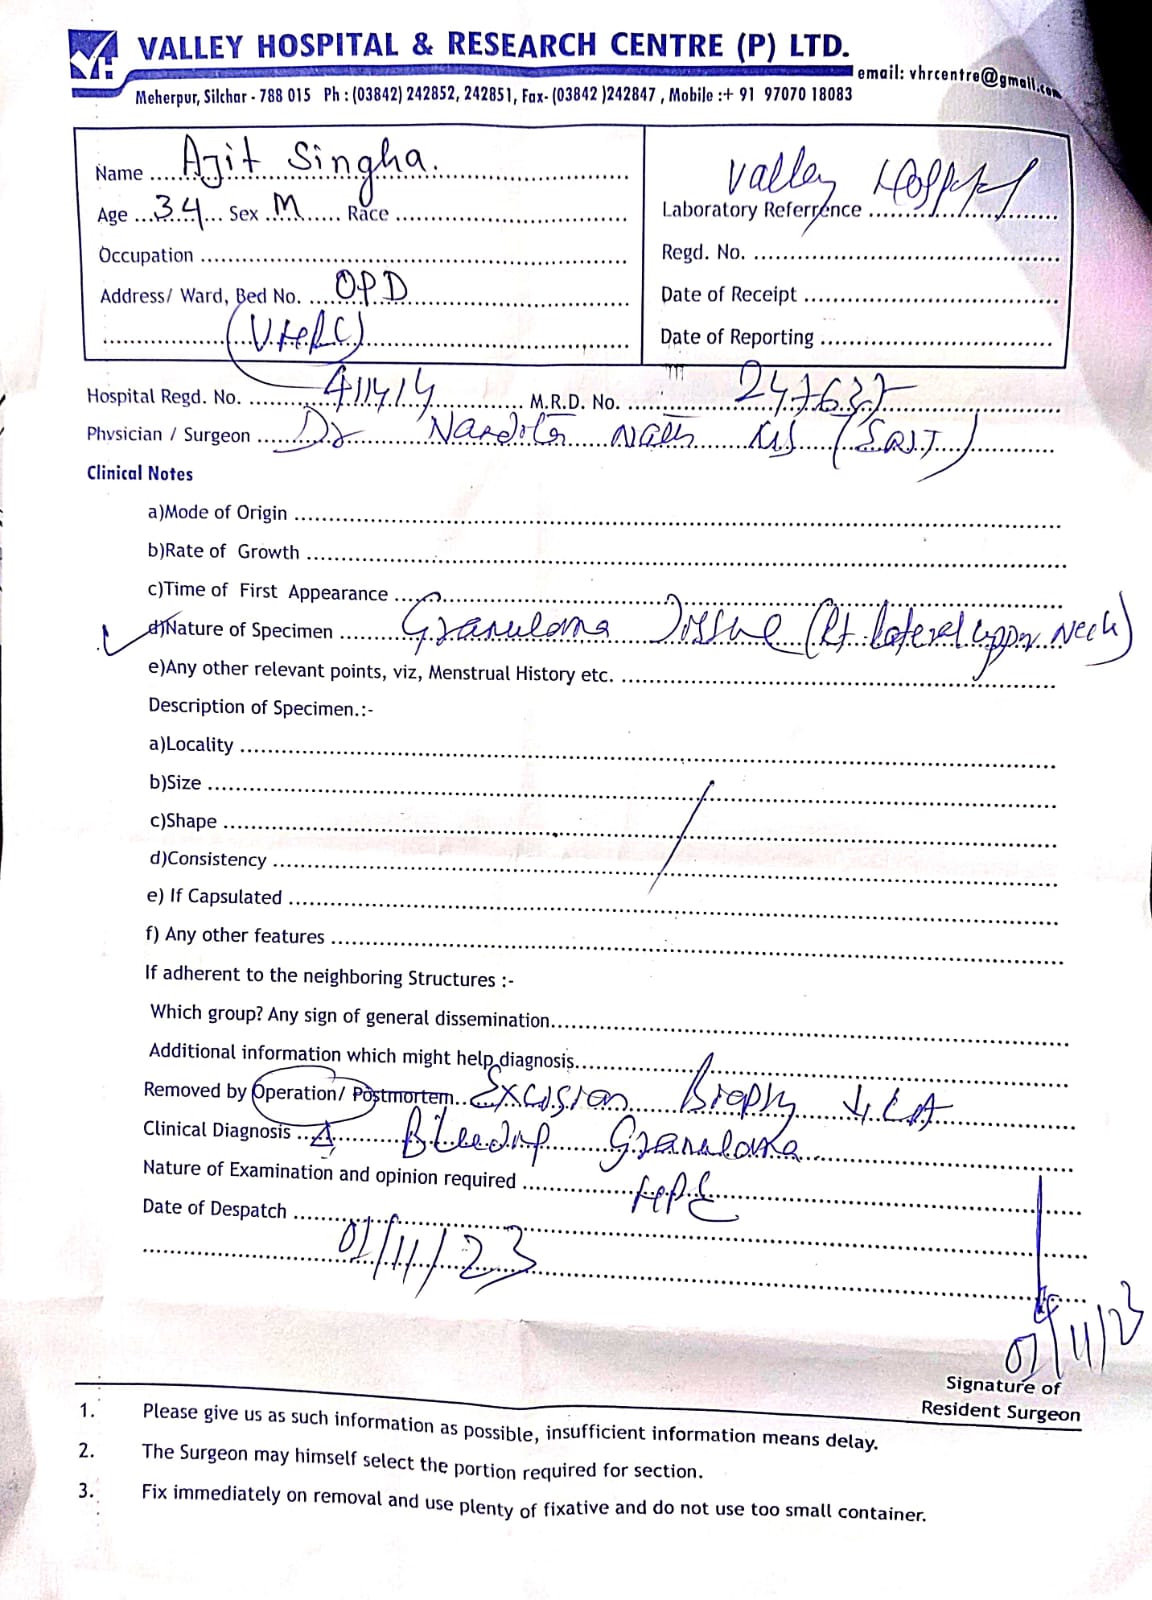 VALLEY HOSPITAL & RESEARCH CENTRE (P) LTD.
email: vhrcentre@gmail.com
Meherpur, Silchar - 788 015 Ph : (03842) 242852, 242851, Fax- (03842 )242847 , Mobile :+ 91 97070 18083
Name Ajit Singha.
Age 34 Sex M Race
Occupation
Address/ Ward, Bed No. OPD
(VHRC)
Valley Hospital
Laboratory Referrence
Regd. No.
Date of Receipt
Date of Reporting
Hospital Regd. No. 411414 M.R.D. No. 247637
Physician / Surgeon Dr Nath MS
Clinical Notes
a)Mode of Origin
b)Rate of Growth
c)Time of First Appearance
d)Nature of Specimen Granuloma Tissue (Rt. lateral upper Neck)
e)Any other relevant points, viz, Menstrual History etc.
Description of Specimen.:-
a)Locality
b)Size
c)Shape
d)Consistency
e) If Capsulated
f) Any other features
If adherent to the neighboring Structures :-
Which group? Any sign of general dissemination
Additional information which might help diagnosis
Removed by Operation/ Postmortem Excision Biopsy ↓ LA
Clinical Diagnosis Δ Bleeding Granuloma
Nature of Examination and opinion required HPE
Date of Despatch
01/11/23
01/11/23
Signature of
Resident Surgeon
1. Please give us as such information as possible, insufficient information means delay.
2. The Surgeon may himself select the portion required for section.
3. Fix immediately on removal and use plenty of fixative and do not use too small container.